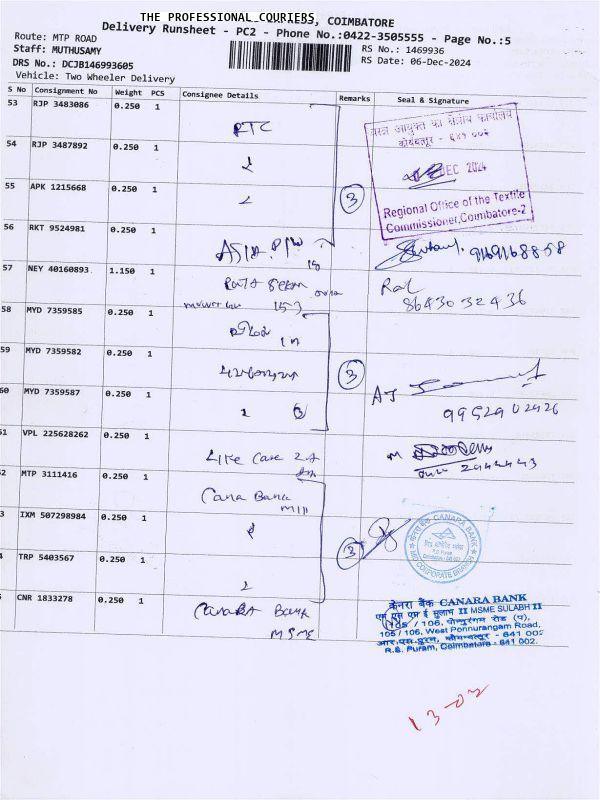 THE PROFESSIONAL COURIERS, COIMBATORE
Delivery Runsheet - PC2 - Phone No.:0422-3505555 - Page No.:5
Route: MTP ROAD
RS No.: 1469936
Staff: MUTHUSAMY
RS Date: 06-Dec-2024
DRS No.: DCJB146993605
Vehicle: Two Wheeler Delivery
S No Consignment No Weight PCS Consignee Details Remarks Seal & Signature
53 RJP 3483086 0.250 1 RTC
54 RJP 3487892 0.250 1
55 APK 1215668 0.250 1
3
DEC 2024
Regional Office of the Textile
Commissioner, Coimbatore-2
56 RKT 9524981 0.250 1 9169168858
57 NEY 40160893 1.150 1 153
8643032436
58 MYD 7359585 0.250 1
59 MYD 7359582 0.250 1 3
60 MYD 7359587 0.250 1
9952902926
61 VPL 225628262 0.250 1 Like Care
2944443
62 MTP 3111416 0.250 1 Cana Bank
63 IXM 507298984 0.250 1
3
CANARA BANK
64 TRP 5403567 0.250 1
65 CNR 1833278 0.250 1 Canara Bank
MSME
केनरा बैंक CANARA BANK
एम एस एम ई सुलभ II MSME SULABH II
105 / 106, पोन्नुरंगम रोड (प),
105 / 106, West Ponnurangam Road,
आर.एस.पुरम, कोयम्बत्तूर - 641 002
R.S. Puram, Coimbatore - 641 002.
13-02